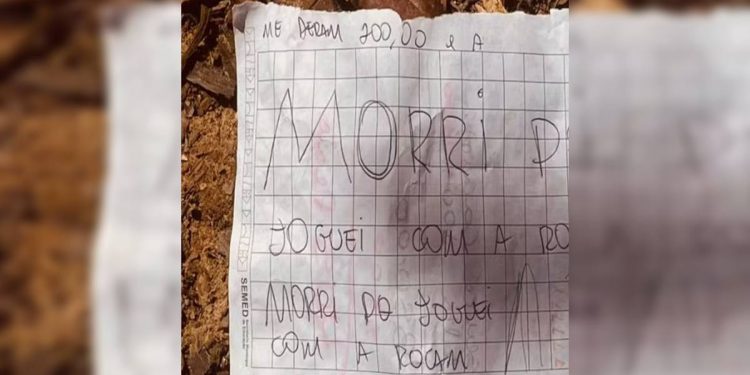 ME DERAM 200,00 e A
MORRi
JOGUEI COM A RO
MORRI DO JOGUEI
COM A ROCAM
SEMED